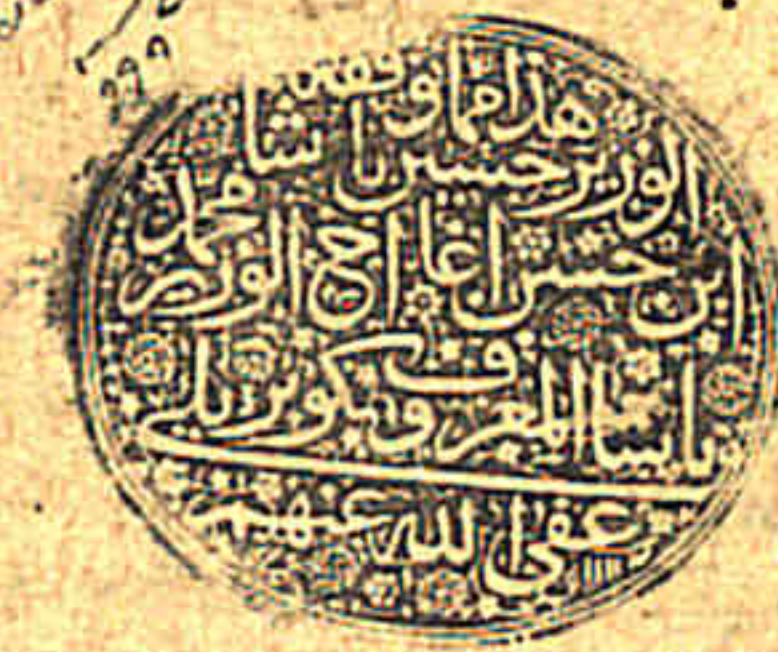 ٢٩٩
هذا مما وقفه
الوزير حسين باشا
ابن حسن اغا اخى الوزير محمد
باشا المعروف بكوپريلى
عفى الله عنهم